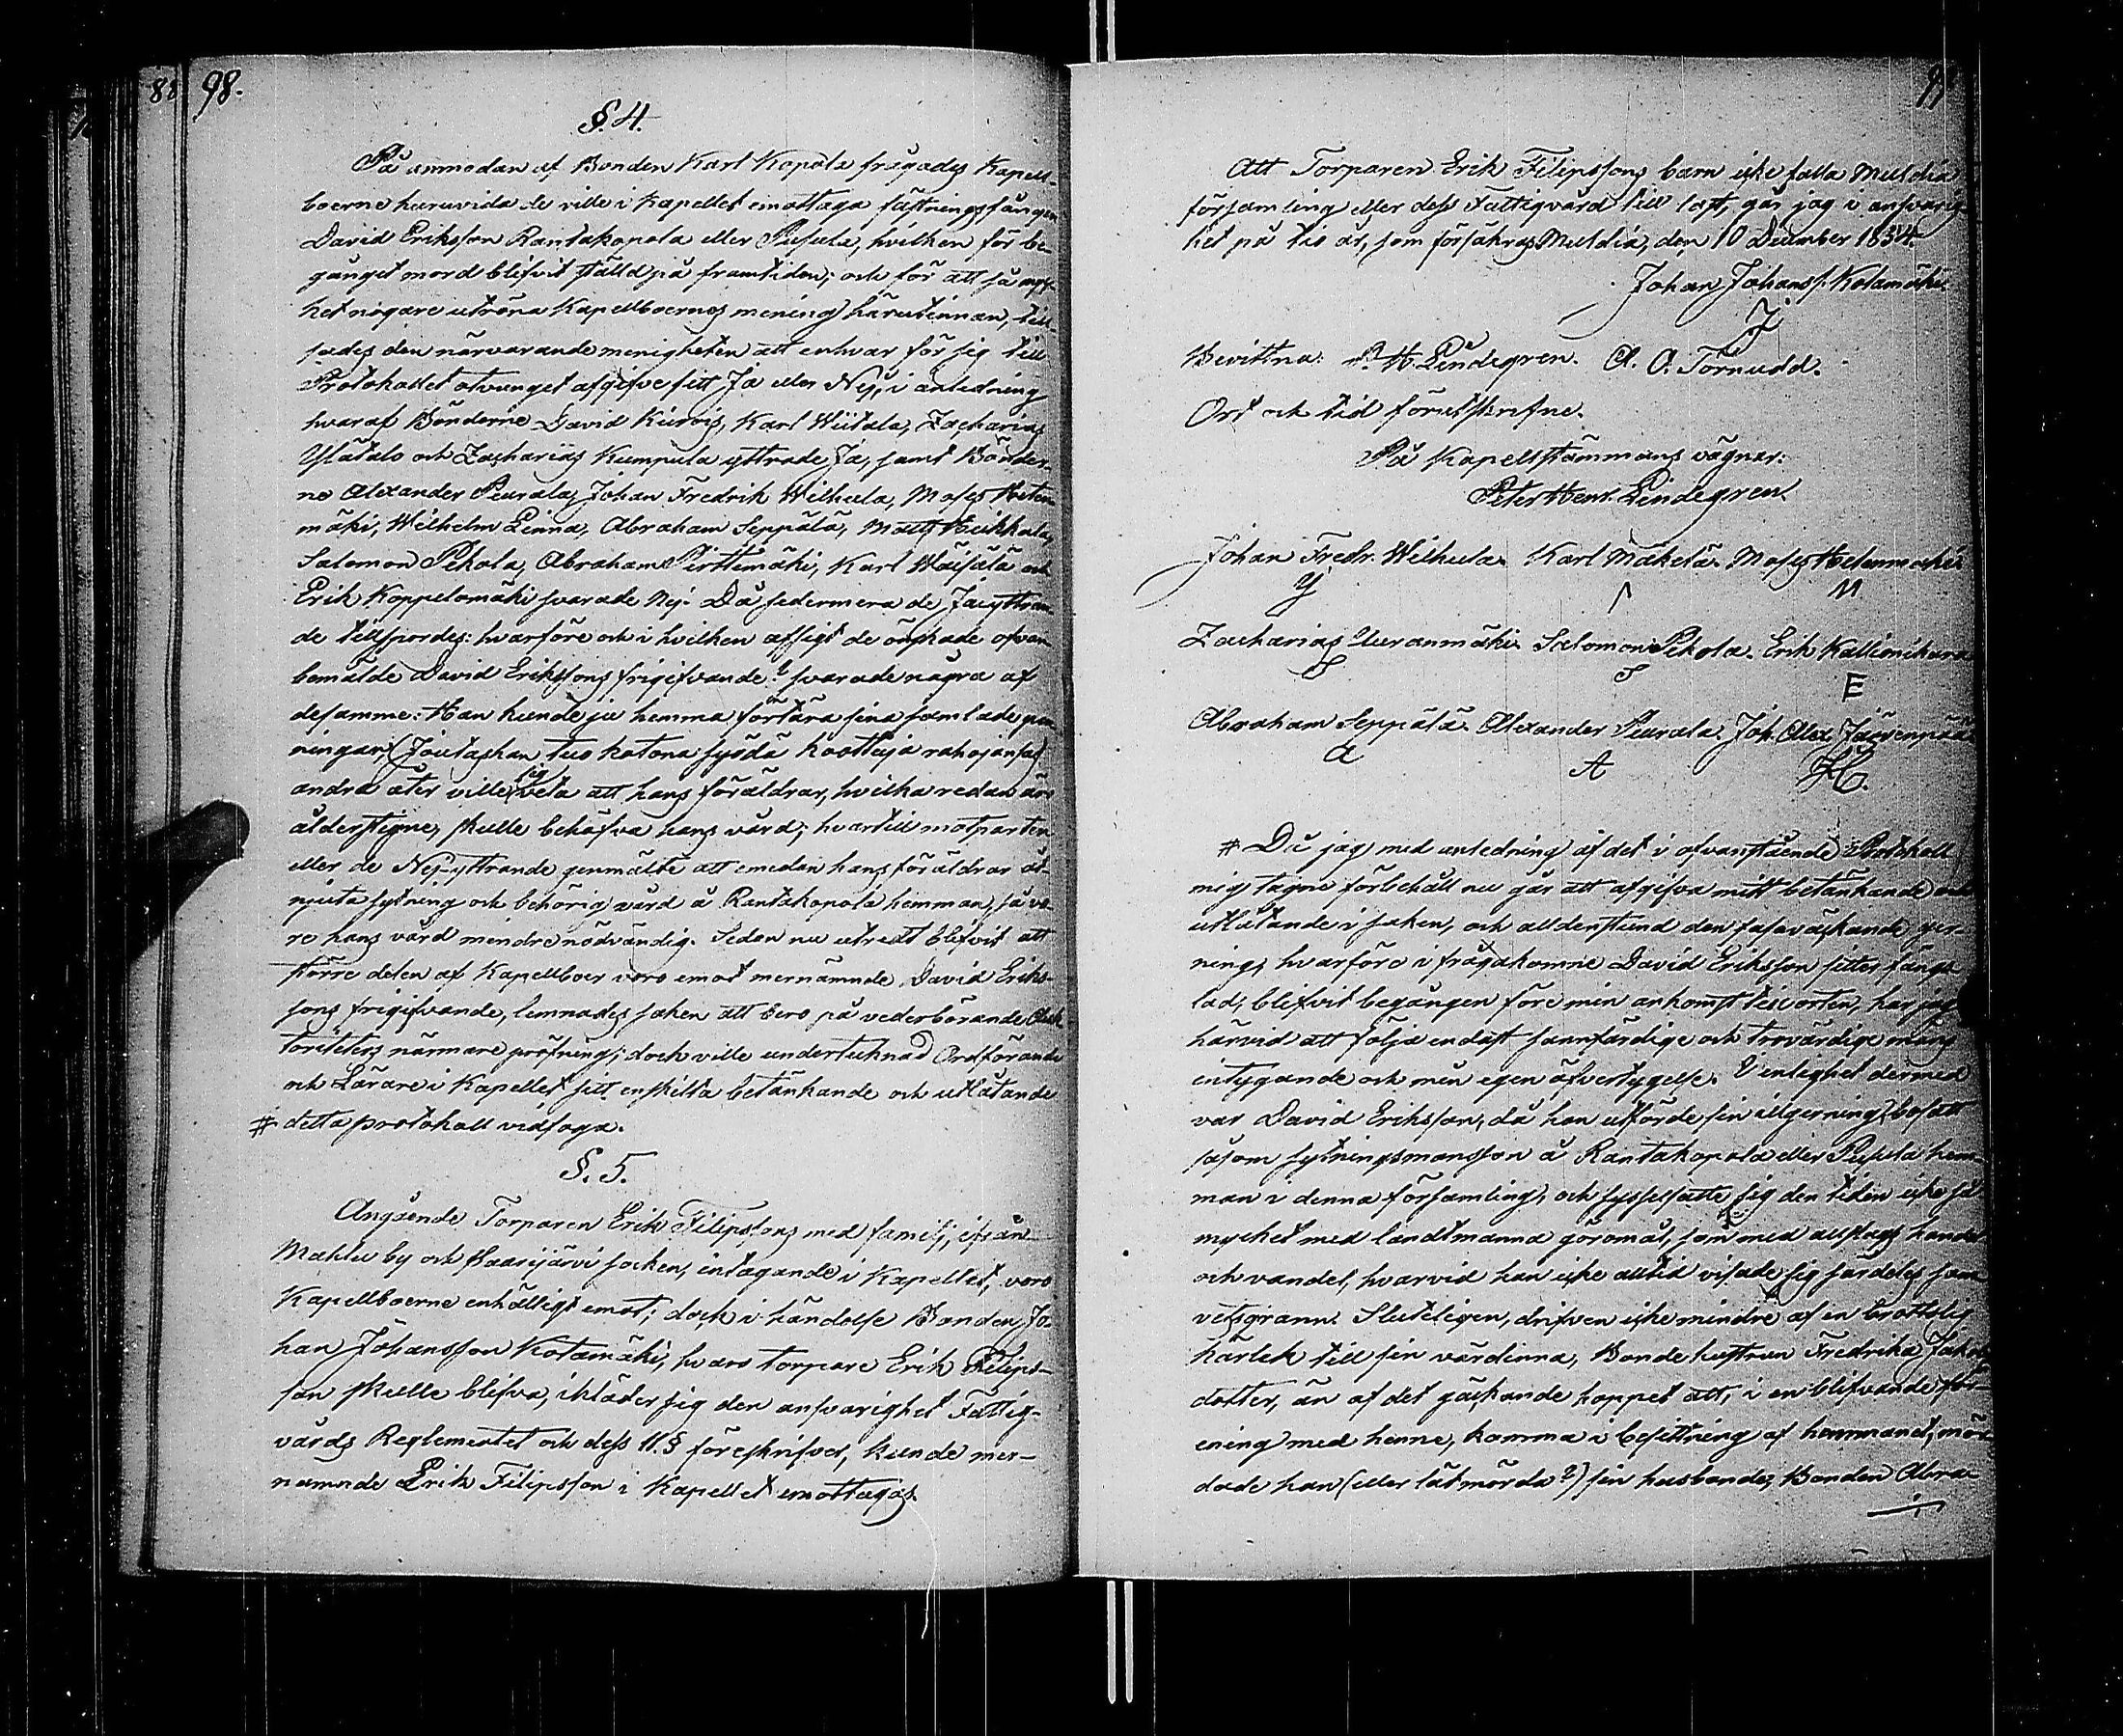 88 98.
§. 4.
På anmodan af Bonden Karl Kopola frågades Kapell-
boerne huruvida de ville i Kapellet emottaga fästningsfången
David Eriksson Rantakopola eller Pusula, hvilken för be-
gånget mord blifvit ställd på framtiden; och för att så myc-
ket nogare utröna Kapellboernes mening härutinnan, till-
sades den närvarande menigheten att enhvar för sig till
Protokollet otvunget afgifve sitt Ja eller Nej, i anledning
hvaraf Bönderne David Kurvis, Karl Wiitala, Zacharias
Ylätalo och Zacharias Kumpula yttrade Ja, samt Bönder-
ne Alexander Peurala, Johan Fredrik Wilhula, Moses Heton-
mäki, Wilhelm Linna, Abraham Seppälä, Matts Heikkola,
Salomon Pekola, Abraham Pirttimäki, Karl Wäisälä och
Erik Koppelomäki svarade Nej. Då sedermera de Ja yttran-
de tillspordes: hvarföre och i hvilken afsigt de önskade ofvan-
bemälde David Erikssons frigifvande? svarade några af
desamme: Han kunde ju hemma förtära sina samlade pen-
ningar, (Joutashan tuo kotona syödä koottuja rahojansa)
andra åter ville sig veta att hans föräldrar, hvilka redan äro
ålderstigne, skulle behöfva hans vård; hvartill motparten
eller de Nej-yttrande genmälte att emedan hans föräldrar åt-
njuta sytning och behörig vård å Rantakopola hemman, så vo-
re hans vård mindre nödvändig. Sedan nu utredt blifvit att
större delen af Kapellboer voro emot mernämnde David Eriks-
sons frigifvande, lemnades saken att bero på vederbörande Auk-
toriteters närmare pröfning; dock ville undertecknad Ordförande
och Lärare i Kapellet sitt enskilta betänkande och utlåtande
# detta protokoll vidfoga.
§. 5.
Angående Torparen Erik Filipssons med familj, ifrån
Mahlu by och Saarijärvi socken, intagande i Kapellet, voro
Kapellboerne enhälligt emot; dock i händelse Bonden Jo-
han Johansson Kotamäki, hvars torpare Erik Filips-
son skulle blifva, ikläder sig den ansvarighet Fattig-
vårds Reglementet och dess 11. § föreskrifver, kunde mer-
nämnde Erik Filipsson i Kapellet emottagas.
Att Torparen Erik Filipssons barn icke falla Multia
församling eller dess Fattigvård till last, går jag i ansvarig-
het på tio år, som försäkras Multia, den 10 December 1854.
Johan Johanss. Kotamäki.
J
Bevittna: P. H. Lindegren. A. O. Törnudd.
Ort och tid förutskrifne.
På Kapellstämmans vägnar:
Peter Henr. Lindegren.
Johan Fredr. Wilhula. Karl Mäkelä. Moses Hetonmäki.
M
Zacharias Uuranmäki. Salomon Pekola. Erik Kallionikara
E
Abraham Seppälä. Alexander Peurala. Joh. Alex. Järvenpää
A A
# Då jag med anledning af det i ofvanstående Protokoll
mig tagne förbehåll nu går att afgifva mitt betänkande och
utlåtande i saken, och alldenstund den fasaväckande ger-
ning, hvarföre i fråga komne David Eriksson sitter fängs-
lad, blifvit begången före min ankomst till orten, har jag
härvid att följa endast sannfärdige och trovärdige mäns
intygande och min egen öfvertygelse. I enlighet dermed
var David Eriksson, då han utförde sin illgerning, bosatt
såsom sytningsmansson å Rantakopola eller Pusula hem-
man i denna församling, och sysselsatte sig den tiden icke så
mycket med landtmanna göromål, som med allslags handel
och vandel, hvarvid han icke alltid visade sig särdeles sam-
vetsgrann. Sluteligen, drifven icke mindre af en brottslig
kärlek till sin värdinna, Bonde hustrun Fredrika Jakobs
dotter, än af det gäckande hoppet att, i en blifvande för-
ening med henne, komma i besittning af hemmanet, mör-
dade han (eller lät mörda?) sin husbonde, Bonden Abra-